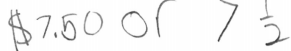 $7.50 or 7 1/2